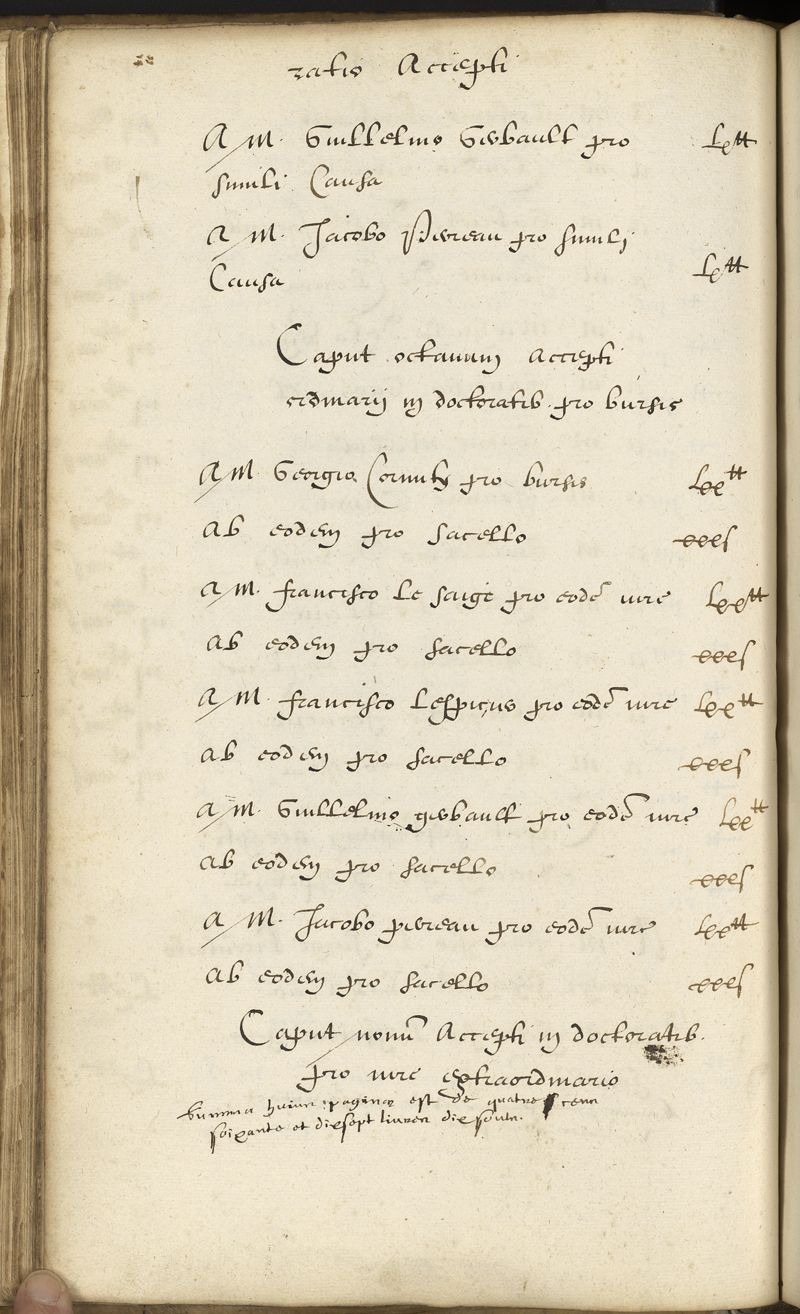 ratio Accepti
A M. Guillelmo Gerbault pro lx tt
simili Causa
A M. Jacobo Perreau pro simili
Causa lx tt
Caput octauum accepti
ordinarij in doctoratib. pro bursis
A M. Georgio Cornuty pro bursis lxx tt
ab eodem pro sacello xxx s
a M. francisco le saige pro eodē iure lxx tt
ab eodem pro sacello xxx s
a M. francisco Lespicier pro eodē iure lxx tt
ab eodem pro sacello xxx s
a M. Guillelmo gerbault pro eodē iure lxx tt
ab eodem pro sacello xxx s
a M. Jacobo perreau pro eodē iure lxx tt
ab eodem pro sacello xxx s
Caput nonū Accepti in doctoratib.
pro iure extraordinario
Summa huius paginae est de quatre cens
soixante et dixsept livres dix soulz.